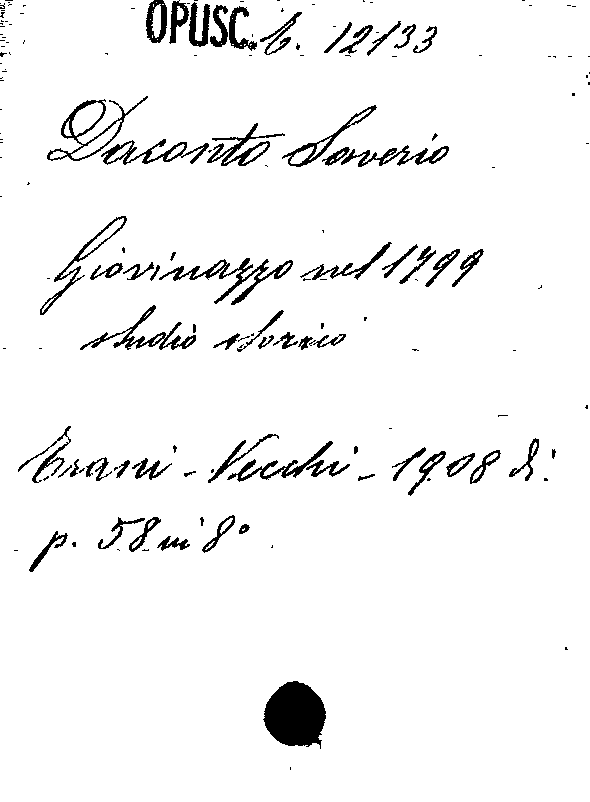 OPUSC. b. 12133
Daconto Saverio
Giovinazzo nel 1799
studio storico
Trani - Vecchi - 1908 di
p. 58 in 8°